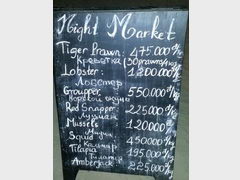 Night Market
Tiger Prawn: 475.000 đ/kg
Креветка 30 грамм/
Lobster: 1.200.000 đ/
Лобстер
Groupper 550.000 đ/kg
Морской окунь
Red Snapper 225.000 đ/
Луциан
Mussels 120.000 đ/
Мидии
Squid 450000 đ/kg
Кальмар
Tilapia 195.000 đ/kg
Тилапия
Amberjack 225.000 đ/